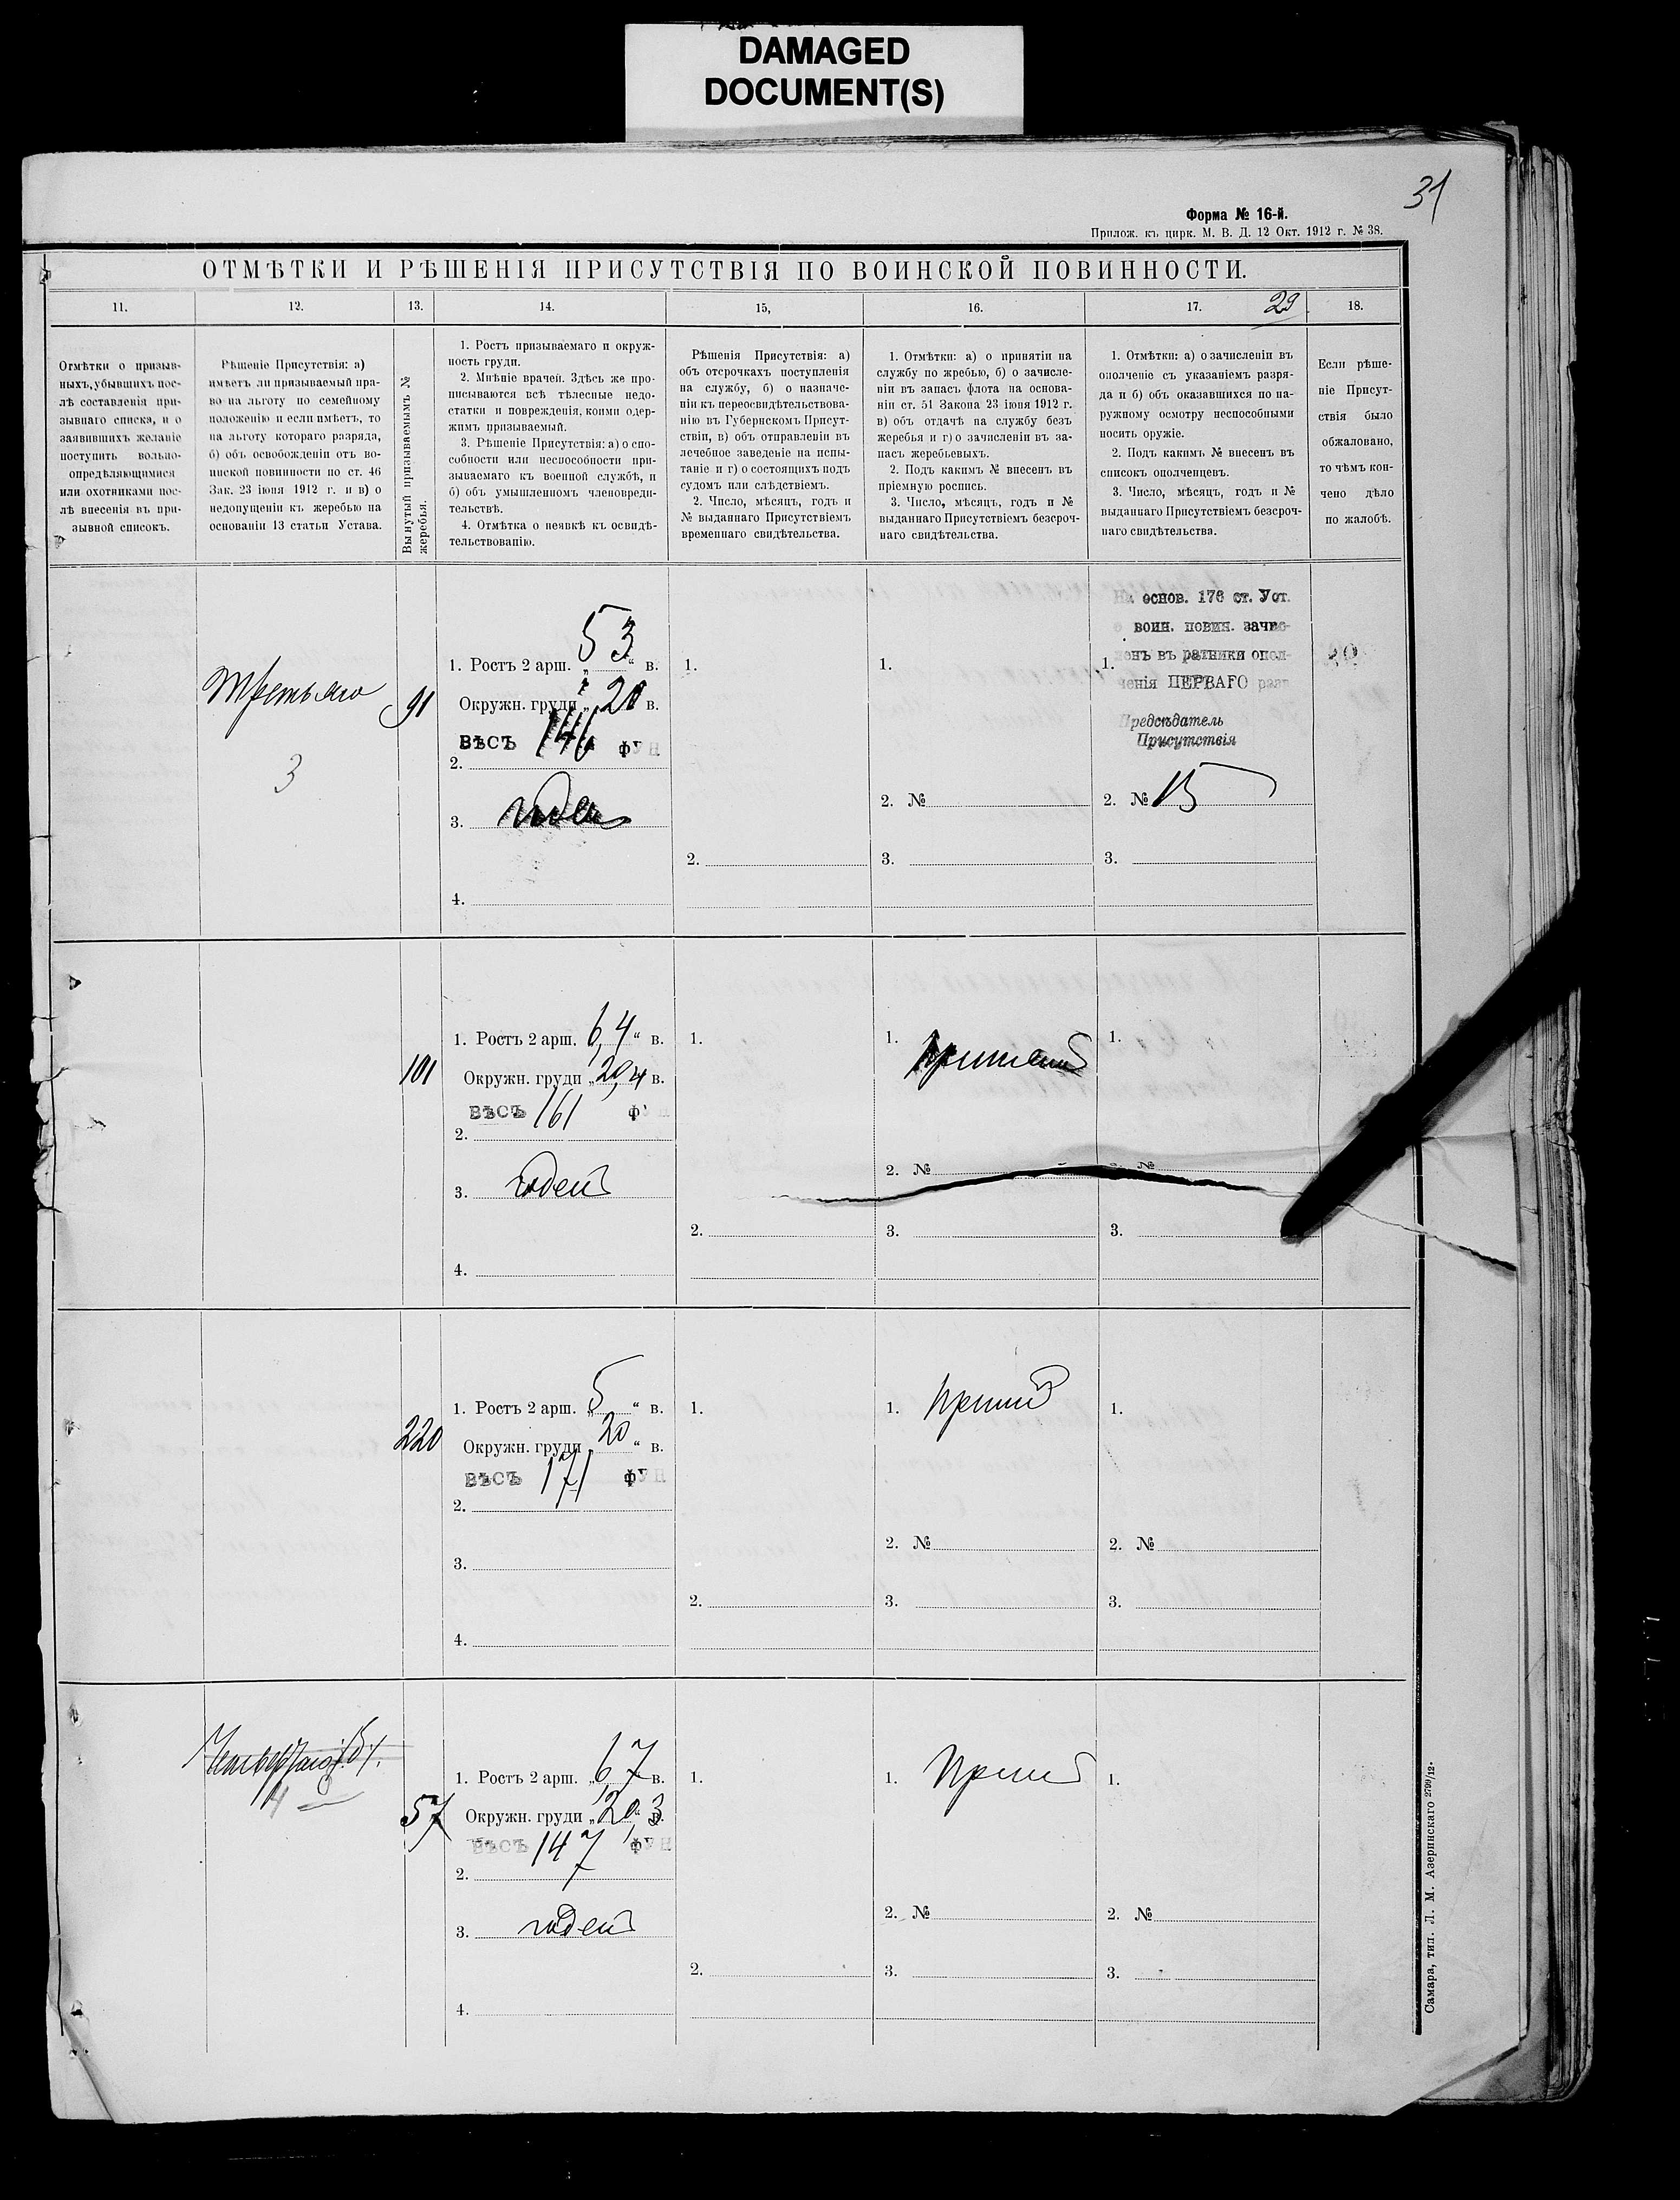 DAMAGED
DOCUMENT(S)
31
Форма № 16-й.
Прилож. къ цирк. М. В. Д. 12 Окт. 1912 г. № 38.
ОТМѢТКИ И РѢШЕНІЯ ПРИСУТСТВІЯ ПО ВОИНСКОЙ ПОВИННОСТИ.
11.
12.
13.
14.
15,
16.
17.
29
18.
Отмѣтки о призыв-
ныхъ, убывшихъ пос-
лѣ составленія при-
зывнаго списка, и о
заявившихъ желаніе
поступить вольно-
опредѣляющимися
или охотниками пос-
лѣ внесенія въ при-
зывной списокъ.
Рѣшеніе Присутствія: а)
имѣетъ ли призываемый пра-
во на льготу по семейному
положенію и если имѣетъ, то
на льготу котораго разряда,
б) объ освобожденіи отъ во-
инской повинности по ст. 46
Зак. 23 іюня 1912 г. и в) о
недопущеніи къ жеребью на
основаніи 13 статьи Устава.
Вынутый призываемымъ №
жеребья.
1. Ростъ призываемаго и окруж-
ность груди.
2. Мнѣніе врачей. Здѣсь же про-
писываются всѣ тѣлесные недо-
статки и поврежденія, коими одер-
жимъ призываемый.
3. Рѣшеніе Присутствія: а) о спо-
собности или неспособности при-
зываемаго къ военной службѣ, и
б) объ умышленномъ членовреди-
тельствѣ.
4. Отмѣтка о неявкѣ къ освидѣ-
тельствованію.
Рѣшенія Присутствія: а)
объ отсрочкахъ поступленія
на службу, б) о назначе-
ніи къ переосвидѣтельствова-
нію въ Губернскомъ Присут-
ствіи, в) объ отправленіи въ
лечебное заведеніе на испы-
таніе и г) о состоящихъ подъ
судомъ или слѣдствіемъ.
2. Число, мѣсяцъ, годъ и
№ выданнаго Присутствіемъ
временнаго свидѣтельства.
1. Отмѣтки: а) о принятіи на
службу по жребью, б) о зачисле-
ніи въ запасъ флота на основа-
ніи ст. 51 Закона 23 іюня 1912 г.
в) объ отдачѣ на службу безъ
жеребья и г) о зачисленіи въ за-
пасъ жеребьевыхъ.
2. Подъ какимъ № внесенъ въ
пріемную роспись.
3. Число, мѣсяцъ, годъ и №
выданнаго Присутствіемъ безсроч-
наго свидѣтельства.
1. Отмѣтки: а) о зачисленіи въ
ополченіе съ указаніемъ разря-
да и б) объ оказавшихся по на-
ружному осмотру неспособными
носить оружіе.
2. Подъ какимъ № внесенъ въ
списокъ ополченцевъ.
3. Число, мѣсяцъ, годъ и №
выданнаго Присутствіемъ безсроч-
наго свидѣтельства.
Если рѣше-
ніе Присут-
ствія было
обжаловано,
то чѣмъ кон-
чено дѣло
по жалобѣ.
Третьяго
3
91
1. Ростъ 2 арш. 5 3 в.
Окружн. груди 20 в.
ВѢСЪ 146 ФУН
2.
3. годенъ
4.
1.
2.
1.
2. №
3.
На основ. 176 ст. Уст.
о воин. повин. зачис-
ленъ въ ратники опол-
ченія ПЕРВАГО разр
Предсѣдатель
Присутствія
1.
2. № 15
3.
101
1. Ростъ 2 арш. 6,4 в.
Окружн. груди 20,4 в.
ВѢСЪ 161 ФУН
2.
3. годенъ
4.
1.
2.
1.
2. №
3.
1.
2. №
3.
220
1. Ростъ 2 арш. 5 в.
Окружн. груди 20 в.
ВѢСЪ 171 ФУН
2.
3.
4.
1.
2.
1. принятъ
2. №
3.
1.
2. №
3.
4
57
1. Ростъ 2 арш. 6,7 в.
Окружн. груди 20,3 в.
ВѢСЪ 147 ФУН
2.
3. годенъ
4.
1.
2.
1. Принятъ
2. №
3.
1.
2. №
3.
Самара, тип. Л. М. Азеринскаго 2799/12.